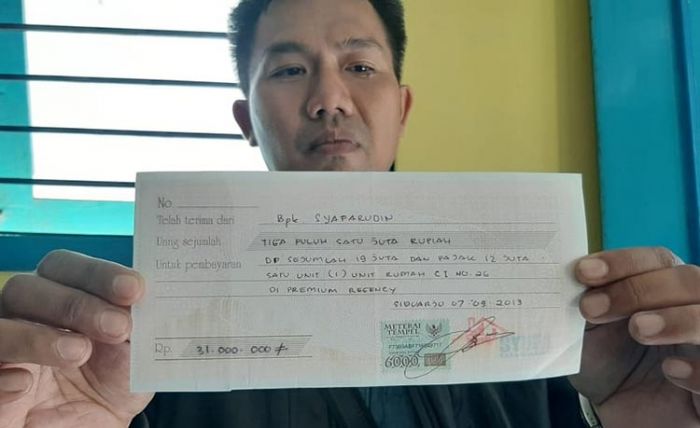 No.
Telah terima dari Bpk SYAFARUDIN
Uang sejumlah TIGA PULUH SATU JUTA RUPIAH
Untuk pembayaran DP SEJUMLAH 19 JUTA DAN PAJAK 12 JUTA
SATU UNIT (1) UNIT RUMAH C1 NO.26
DI PREMIUM REGENCY
SIDOARJO 07.09.2013
Rp. 31.000.000
METERAI
TEMPEL
6000